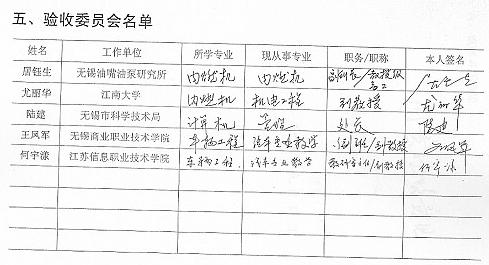 五、验收委员会名单
姓名 工作单位 所学专业 现从事专业 职务/职称 本人签名
居钰生 无锡油嘴油泵研究所 内燃机 内燃机 副所长/教授级高工
尤丽华 江南大学 内燃机 机电工程 副教授 尤丽华
陆建 无锡市科学技术局 计算机 管理 处长 陆建
王凤军 无锡商业职业技术学院 车辆工程 汽车 教学 /副教授
何宇漾 江苏信息职业技术学院 车辆工程 汽车专业教学 教研室主任/副教授